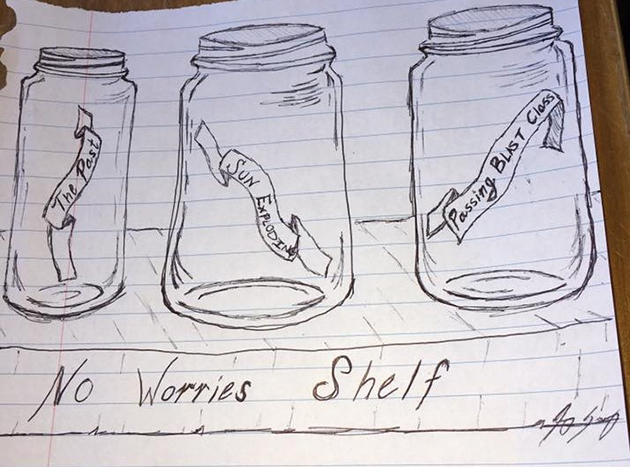 The Past
SUN EXPLODIN
Passing BLAST Class
No Worries Shelf